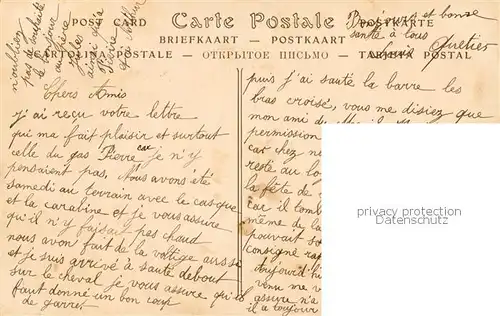 POST CARD
Carte Postale
POSTKARTE
BRIEFKAART — POSTKAART
POSTALE — ОТКРЫТОЕ ПИСЬМО — TARJETA POSTAL
n'oublier
pas de
le bonjour
Jules
ainsi qu'à
Pierre
et bonne
santé à tous
Chers Amis
j'ai reçu votre lettre
qui ma fait plaisir et surtout
celle du gas Pierre car je n'y
pensaient pas. Nous avons été
samedi au terrain avec le casque
et la carabine et je vous assure
qu'il n'y faisait pas chaud
nous avon fait de la voltige aussi
et je suis arrivé à sauté debout
sur le cheval je vous assure qu'il
faut donné un bon coup
de jarret
puis j'ai sauté la barre les
bras croisé, vous me disiez que
mon ami
permission
car chez
resté au
la fête de
car il tomb
même de la
pouvait
consigné
aujourd'hi
venu me v
assure n'a
il a toujour
privacy protection
Datenschutz